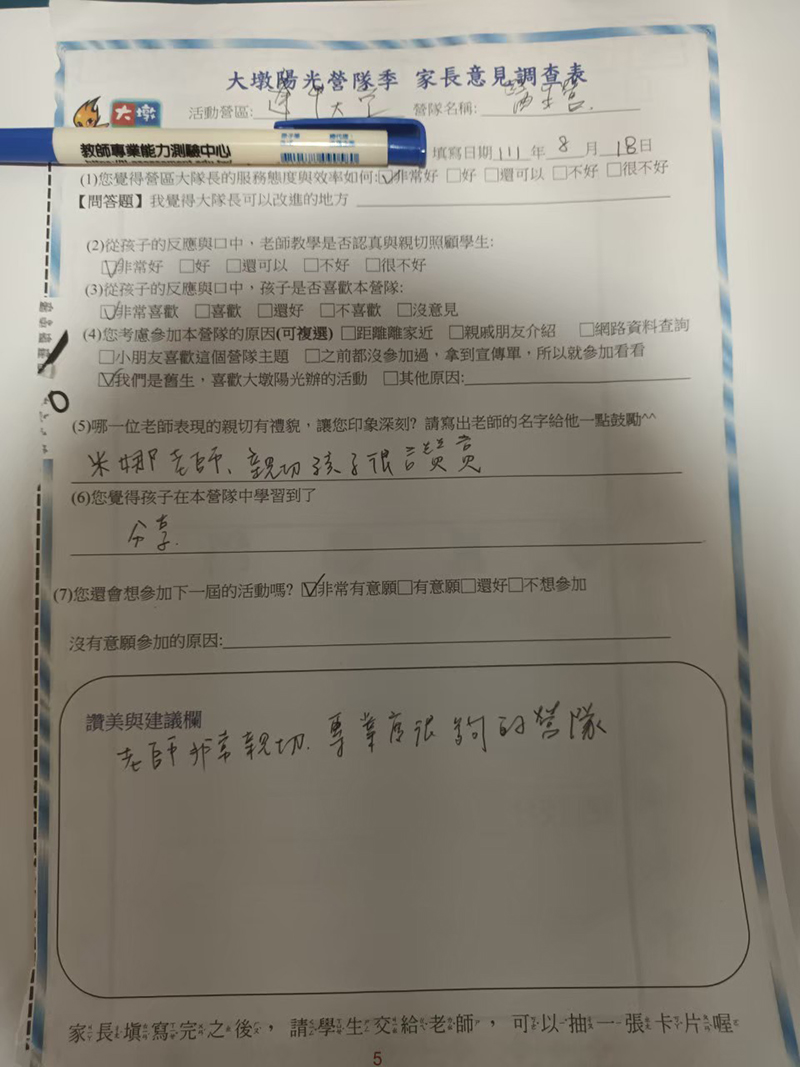 大墩陽光營隊季 家長意見調查表
大墩
活動營區: 逢甲大學 營隊名稱:
教師專業能力測驗中心
填寫日期 111 年 8 月 18 日
(1)您覺得營區大隊長的服務態度與效率如何:☑非常好 □好 □還可以 □不好 □很不好
【問答題】我覺得大隊長可以改進的地方
(2)從孩子的反應與口中,老師教學是否認真與親切照顧學生:
☑非常好 □好 □還可以 □不好 □很不好
(3)從孩子的反應與口中,孩子是否喜歡本營隊:
☑非常喜歡 □喜歡 □還好 □不喜歡 □沒意見
(4)您考慮參加本營隊的原因(可複選) □距離離家近 □親戚朋友介紹 □網路資料查詢
□小朋友喜歡這個營隊主題 □之前都沒參加過,拿到宣傳單,所以就參加看看
☑我們是舊生,喜歡大墩陽光辦的活動 □其他原因:
(5)哪一位老師表現的親切有禮貌,讓您印象深刻? 請寫出老師的名字給他一點鼓勵^^
米娜老師、親切孩子很讚賞
(6)您覺得孩子在本營隊中學習到了
分享.
(7)您還會想參加下一屆的活動嗎? ☑非常有意願□有意願□還好□不想參加
沒有意願參加的原因:
讚美與建議欄
老師非常親切、專業度很夠的營隊
家長填寫完之後,請學生交給老師,可以抽一張卡片喔
5